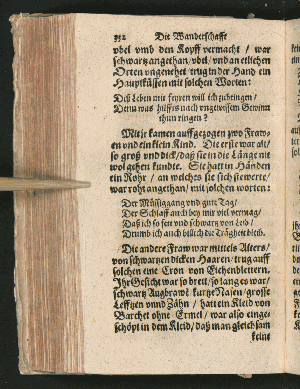 332 Die Wanderschafft
vbel vmb den Kopff vermacht / war
schwartz angethan / vbel / vnd an etlichen
Orten vngenehet / trug in der Hand ein
Hauptküssen mit solchen Worten:
Deß Leben wil feyren will ich zubringen /
Denn was hilffts nach vngewissem Gewinn
thun ringen?
Mit jr kamen auffgezogen zwo Fraw-
en vnd ein klein Kind. Die erste war alt /
so groß vnd dick / daß sie in die Länge nit
wol gehen kundte. Sie hatt in Händen
ein Rohr / an welches sie sich stewrte /
war roht angethan / mit solchen worten:
Der Müssiggang vnd gute Tag /
Der Schlaff auch bey mir viel vermag /
Daß ich so feit vnd schwartz von Leib /
Drumb ich auch billich die Trägheit bleib.
Die andere Fraw war mittels Alters /
von schwartzen dicken Haaren / trug auff
solchen eine Cron von Eichenblettern.
Ihr Gesicht war so breit / so lang es war /
schwartz Augbrawe kurtze Nasen / grosse
Leffzen vnnd Zähn / hatt ein Kleid von
Barchet ohne Ermel / war also einge-
schöpt in dem Kleid / daß man gleichsam
keine